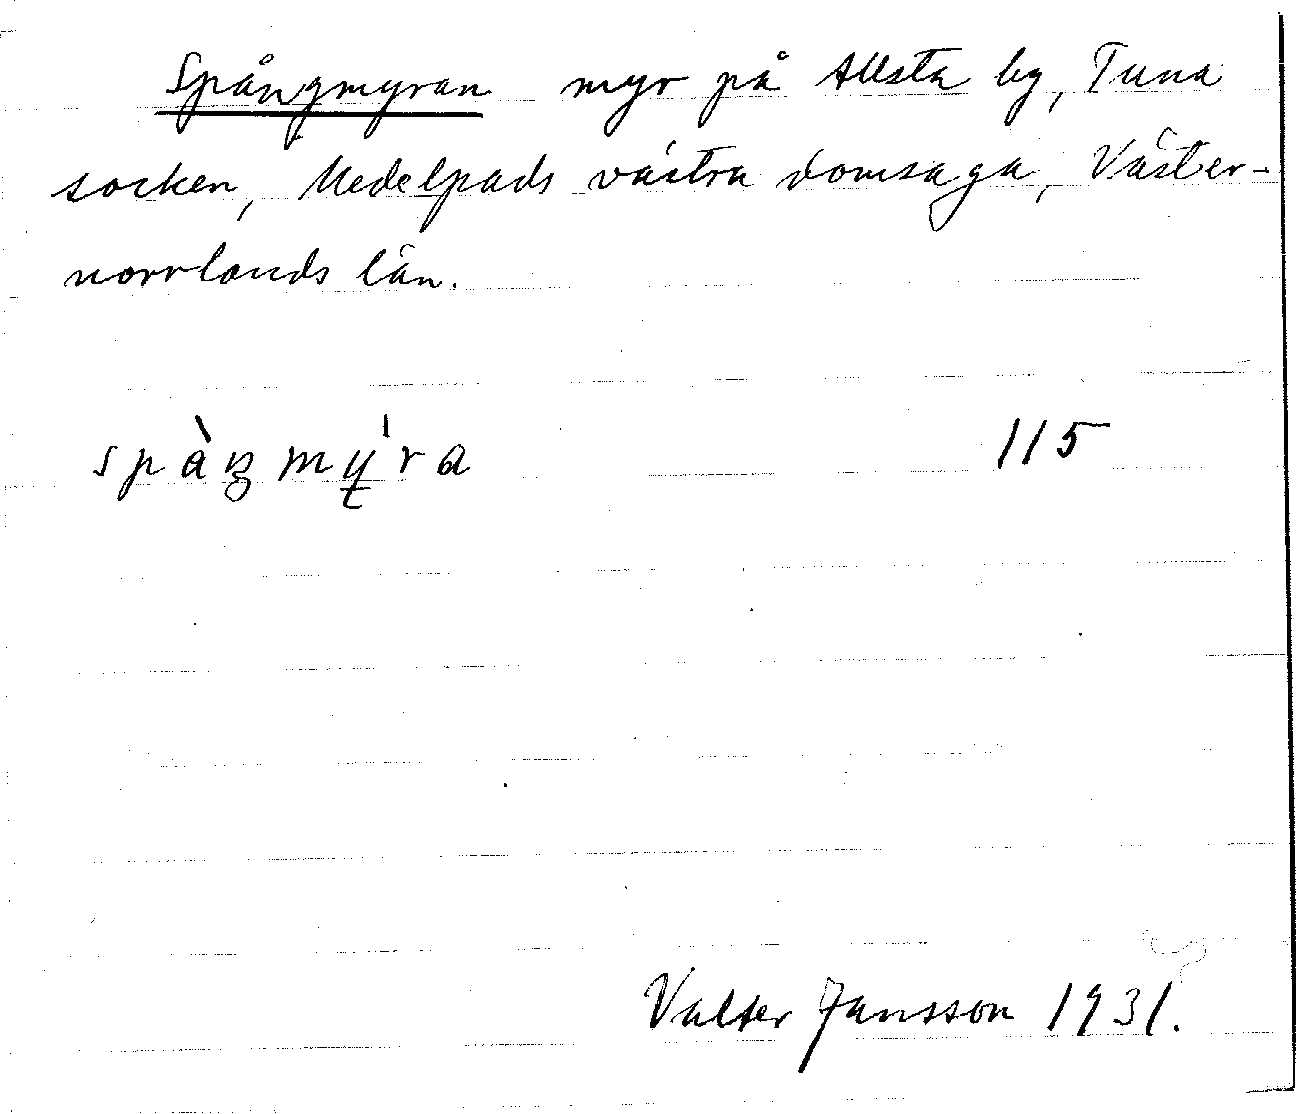 Spångmyran myr på Allsta by, Tuna
socken, Medelpads västra domsaga, Väster-
norrlands län.
spàŋmý̱ra 115
Valter Jansson 1931.